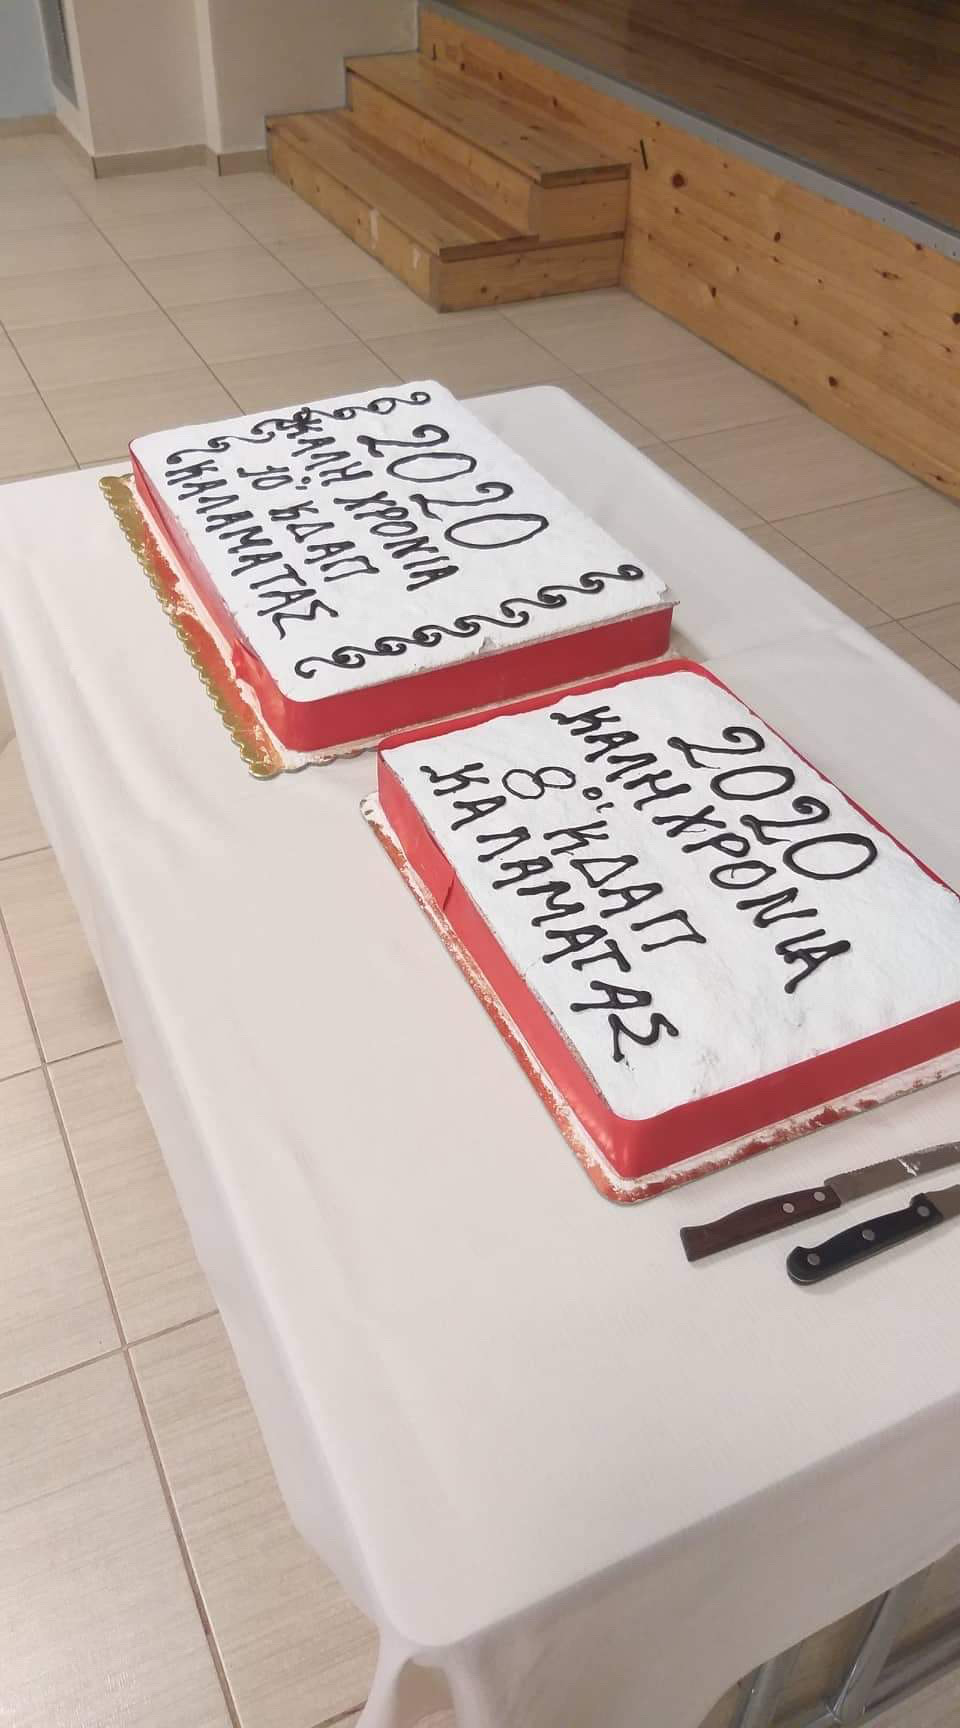 2020
ΚΑΛΗ ΧΡΟΝΙΑ
10ο ΚΔΑΠ
ΚΑΛΑΜΑΤΑΣ
2020
ΚΑΛΗ ΧΡΟΝΙΑ
8οι ΚΔΑΠ
ΚΑΛΑΜΑΤΑΣ